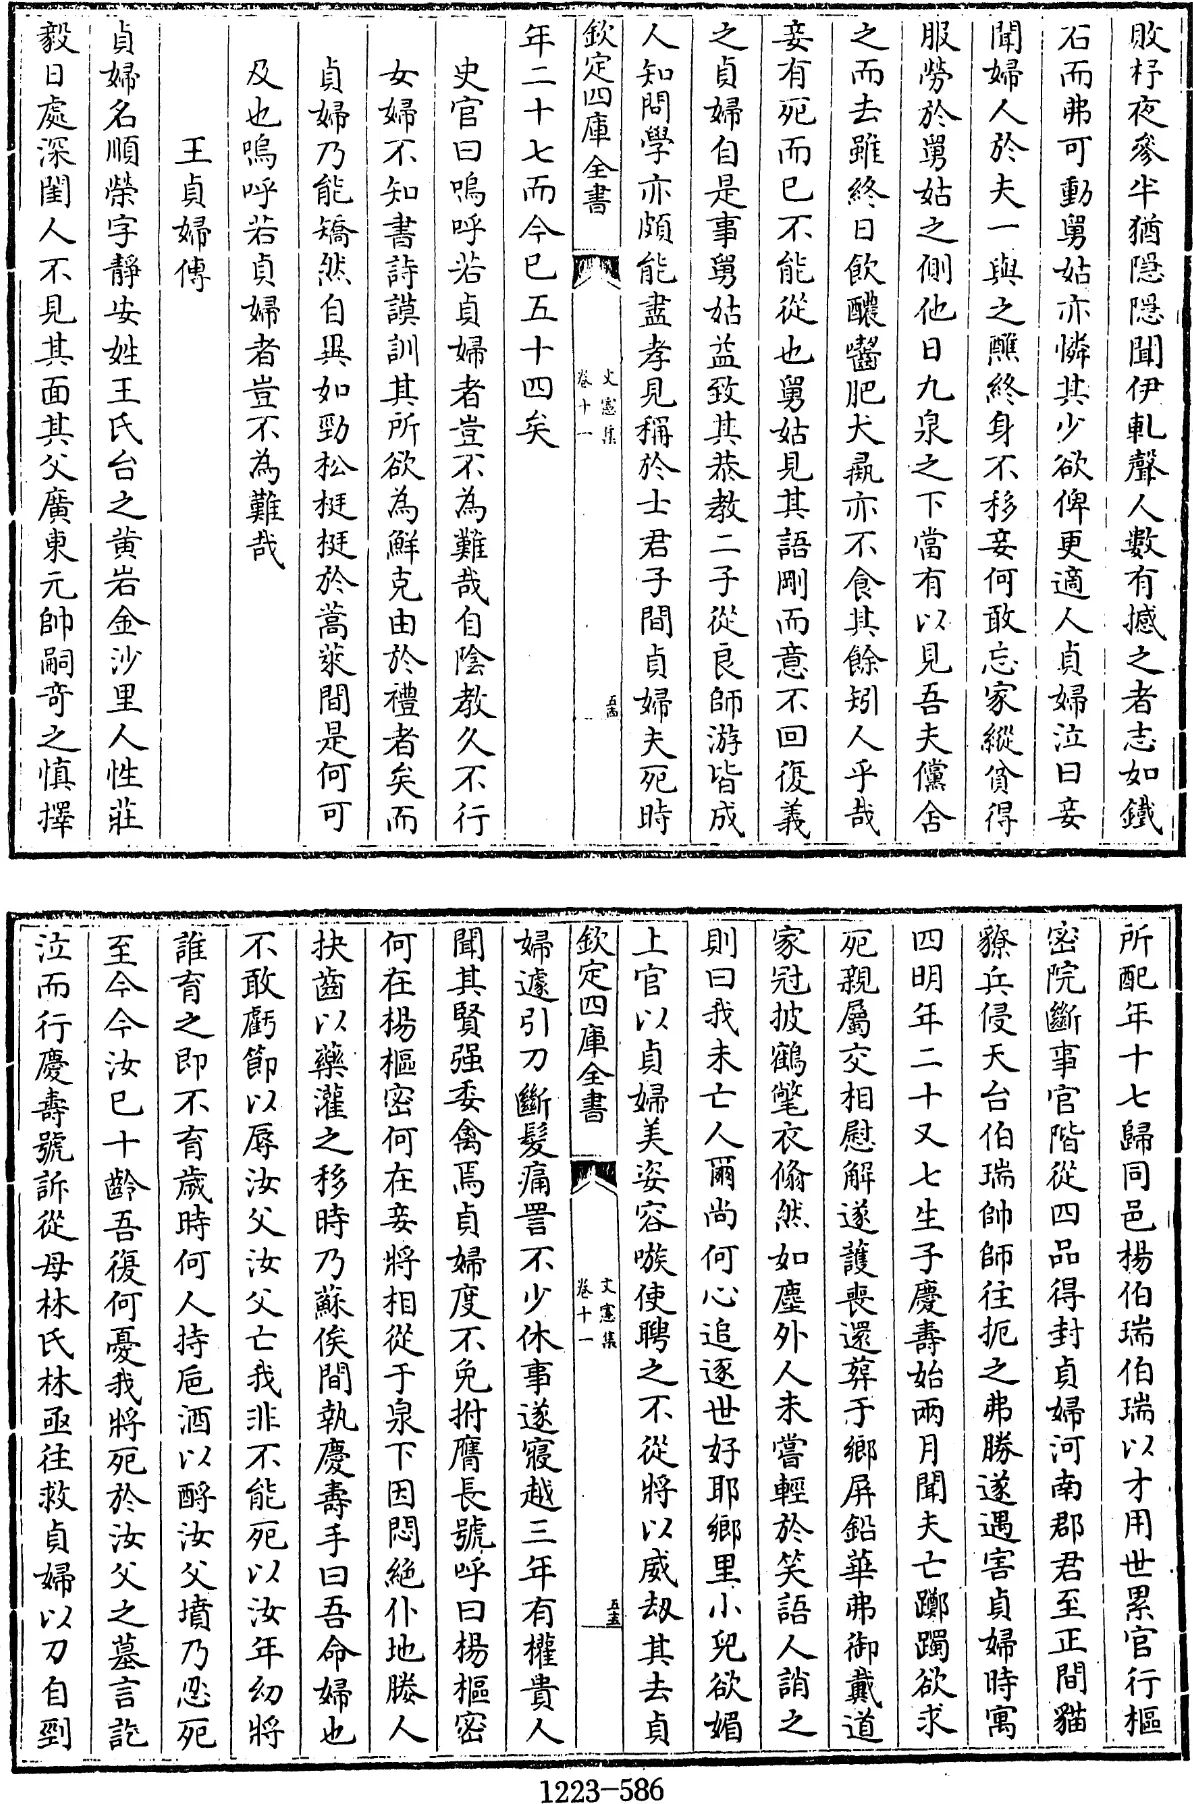 敗杼夜參半猶隱隱聞伊軋聲人數有撼之者志如鐵
石而弗可動舅姑亦憐其少欲俾更適人貞婦泣曰妾
聞婦人於夫一與之醮終身不移妾何敢忘家縱貧得
服勞於舅姑之側他日九泉之下當有以見吾夫儻舍
之而去雖終日飲醲齧肥犬彘亦不食其餘矧人乎哉
妾有死而已不能從也舅姑見其語剛而意不回復義
之貞婦自是事舅姑益致其恭教二子從良師游皆成
人知問學亦頗能盡孝見稱於士君子間貞婦夫死時
欽定四庫全書
文憲集
卷十一
五十四
年二十七而今已五十四矣
史官曰嗚呼若貞婦者豈不為難哉自陰教久不行
女婦不知書詩謨訓其所欲為鮮克由於禮者矣而
貞婦乃能矯然自異如勁松挺挺於蒿萊間是何可
及也嗚呼若貞婦者豈不為難哉
王貞婦傳
貞婦名順榮字靜安姓王氏台之黃岩金沙里人性莊
毅日處深閨人不見其面其父廣東元帥嗣奇之慎擇
所配年十七歸同邑楊伯瑞伯瑞以才用世累官行樞
密院斷事官階從四品得封貞婦河南郡君至正間貓
獠兵侵天台伯瑞帥師往扼之弗勝遂遇害貞婦時寓
四明年二十又七生子慶壽始兩月聞夫亡躑躅欲求
死親屬交相慰解遂護喪還葬于鄉屏鉛華弗御戴道
家冠披鶴氅衣翛然如塵外人未嘗輕於笑語人誚之
則曰我未亡人爾尚何心追逐世好耶鄉里小兒欲媚
上官以貞婦美姿容嗾使聘之不從將以威刼其去貞
欽定四庫全書
文憲集
卷十一
五十五
婦遽引刀斷髮痛詈不少休事遂寢越三年有權貴人
聞其賢强委禽焉貞婦度不免拊膺長號呼曰楊樞密
何在楊樞密何在妾將相從于泉下因悶絕仆地媵人
抉齒以藥灌之移時乃蘇俟間執慶壽手曰吾命婦也
不敢虧節以辱汝父汝父亡我非不能死以汝年幼將
誰育之即不育歲時何人持卮酒以酹汝父墳乃忍死
至今今汝已十齡吾復何憂我將死於汝父之墓言訖
泣而行慶壽號訴從母林氏林亟往救貞婦以刀自剄
1223-586